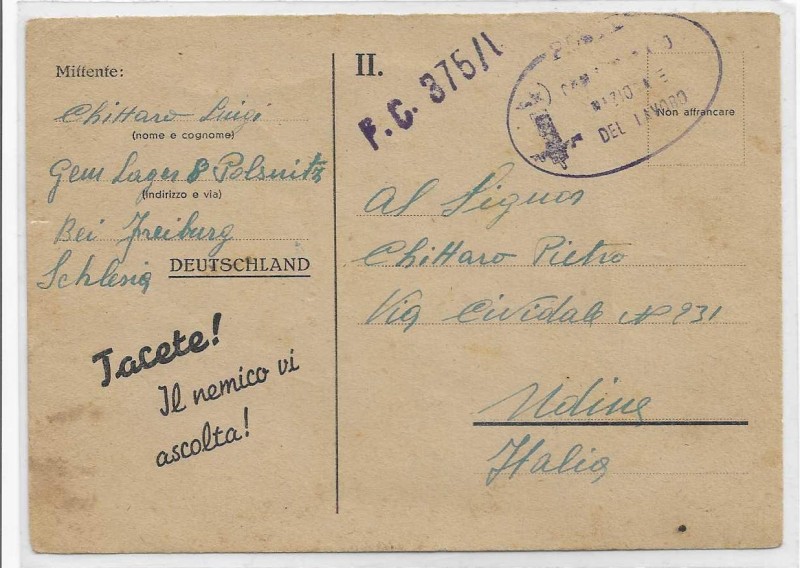 Mittente:
Chittaro Luigi
(nome e cognome)
Gem Lager 8 Polsnitz
(indirizzo e via)
Bei Freiburg
Schlesia DEUTSCHLAND
Tacete!
Il nemico vi
ascolta!
II.
F.C. 375/1
NAZIONALE
DEL LAVORO
Non affrancare
Al Signor
Chittaro Pietro
Via Cividale N 231
Udine
Italia